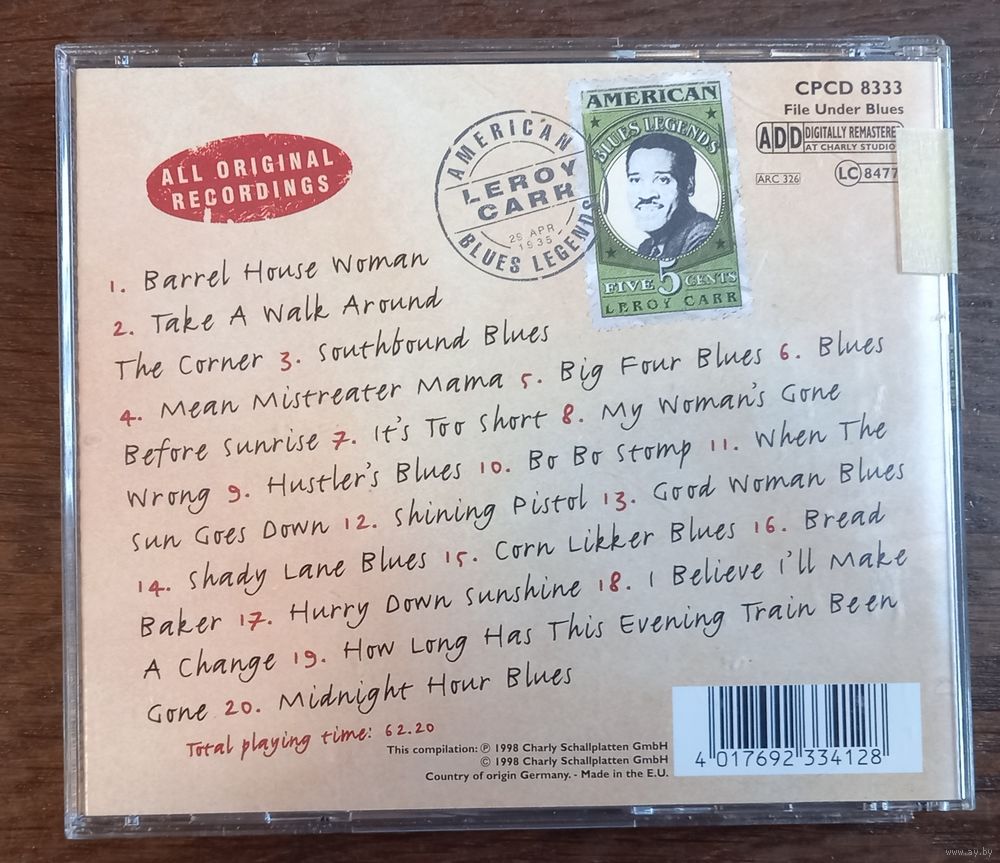 ALL ORIGINAL
RECORDINGS
AMERICAN
LEROY
CARR
29 APR
1935
BLUES LEGENDS
AMERICAN
BLUES LEGENDS
FIVE 5 CENTS
LEROY CARR
CPCD 8333
File Under Blues
ADD DIGITALLY REMASTERE
AT CHARLY STUDIO
ARC 326
LC 8477
1. Barrel House Woman
2. Take A Walk Around
The Corner 3. Southbound Blues
4. Mean Mistreater Mama 5. Big Four Blues 6. Blues
Before Sunrise 7. It's Too Short 8. My Woman's Gone
Wrong 9. Hustler's Blues 10. Bo Bo Stomp 11. When The
Sun Goes Down 12. Shining Pistol 13. Good Woman Blues
14. Shady Lane Blues 15. Corn Likker Blues 16. Bread
Baker 17. Hurry Down Sunshine 18. I Believe I'll Make
A Change 19. How Long Has This Evening Train Been
Gone 20. Midnight Hour Blues
Total playing time: 62.20
This compilation: ℗ 1998 Charly Schallplatten GmbH
© 1998 Charly Schallplatten GmbH
Country of origin Germany. - Made in the E.U.
4 017692 334128
www.ay.by